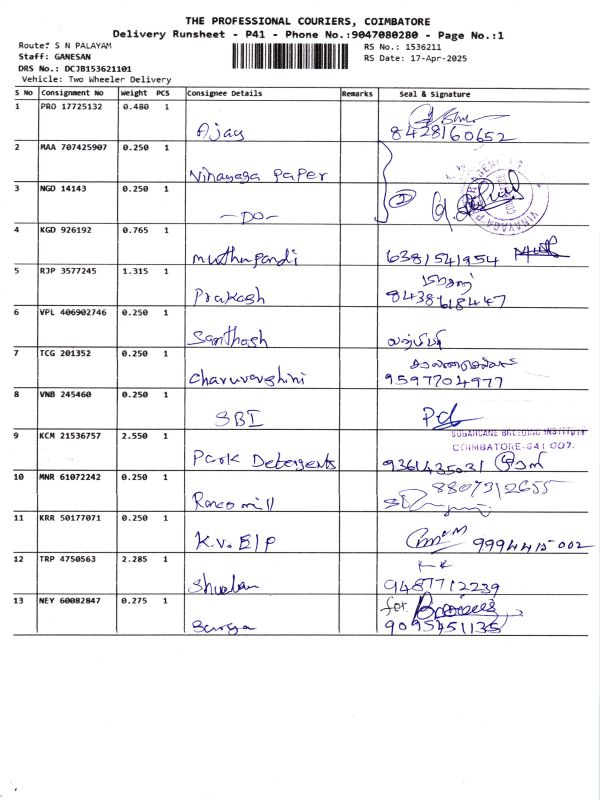 THE PROFESSIONAL COURIERS, COIMBATORE
Delivery Runsheet - P41 - Phone No.:9047080280 - Page No.:1
Route: S N PALAYAM
RS No.: 1536211
Staff: GANESAN
RS Date: 17-Apr-2025
DRS No.: DCJB153621101
Vehicle: Two Wheeler Delivery
S No Consignment No Weight PCS Consignee Details Remarks Seal & Signature
1 PRO 17725132 0.480 1
Ajay 8428160652
2 MAA 707425907 0.250 1
Vinayaga Paper
3 NGD 14143 0.250 1 2
-DO-
4 KGD 926192 0.765 1
muthupandi 6381541954
5 RJP 3577245 1.315 1
Prakash 8438618447
6 VPL 406902746 0.250 1
Santhosh
7 TCG 201352 0.250 1
Charuvarshini 9597704977
8 VNB 245460 0.250 1
SBI
SUGARCANE BREEDING INSTITUTE
9 KCM 21536757 2.550 1 COIMBATORE-641 007.
Park Detergents 9361435031
10 MNR 61072242 0.250 1 8807312655
11 KRR 50177071 0.250 1
K.V. E/P 9994415002
12 TRP 4750563 2.285 1
9487712239
13 NEY 60082847 0.275 1 for
Surya 9095451135